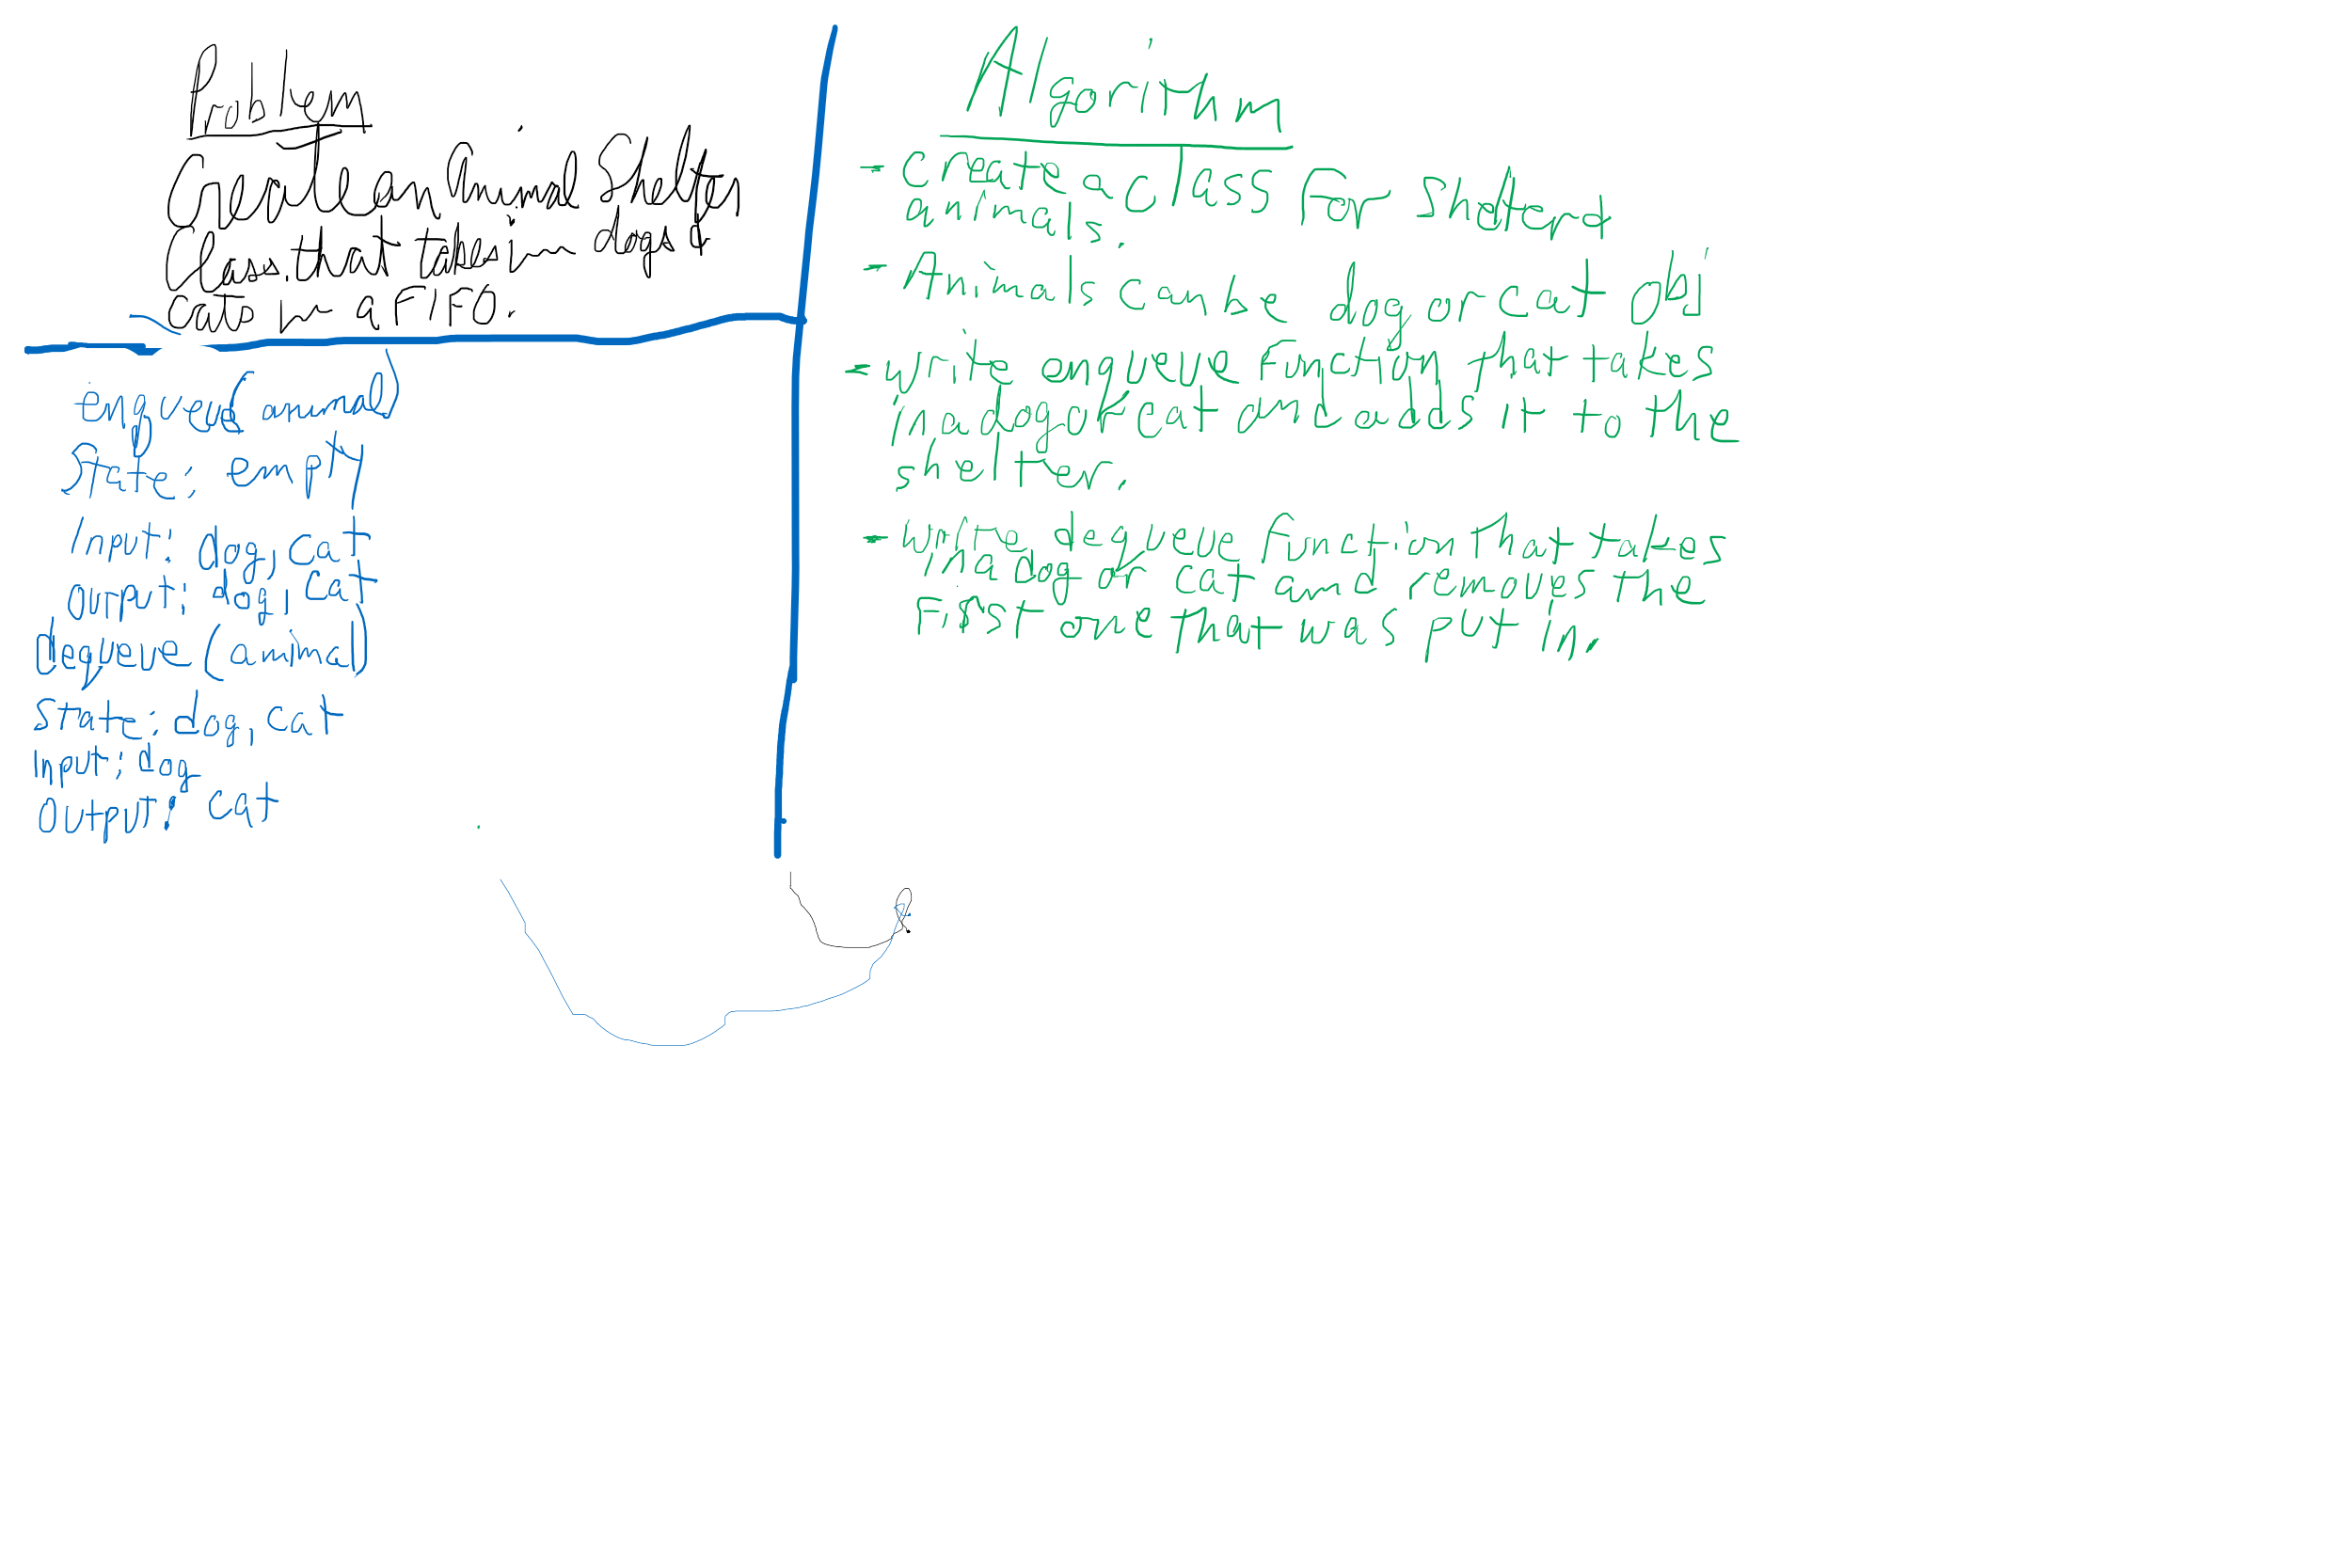 Problem
Create an Animal Shelter
Class. that takes in dogs &
cats in a FIFO.
enqueue(animal)
State: empty
Input: dog, cat
output: dog, cat
dequeue (animal)
State: dog, cat
Input: dog
Output: cat
Algorithm
- Create a class For Shelterd
animals.
- Animals can be dog or cat obj
- Write enqueue function that takes
in a dog or cat and adds it to the
shelter.
- Write dequeue function that takes
in a dog or cat and removes the
First one that was put in.